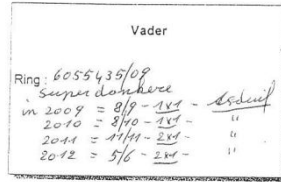 Vader
Ring: 6055435/09
superdonkere
in 2009 = 8/9 - 1x1 - asduif
2010 = 8/10 - 1x1 - "
2011 = 11/11 - 2x1 - "
2012 = 5/6 - 2x1 - "